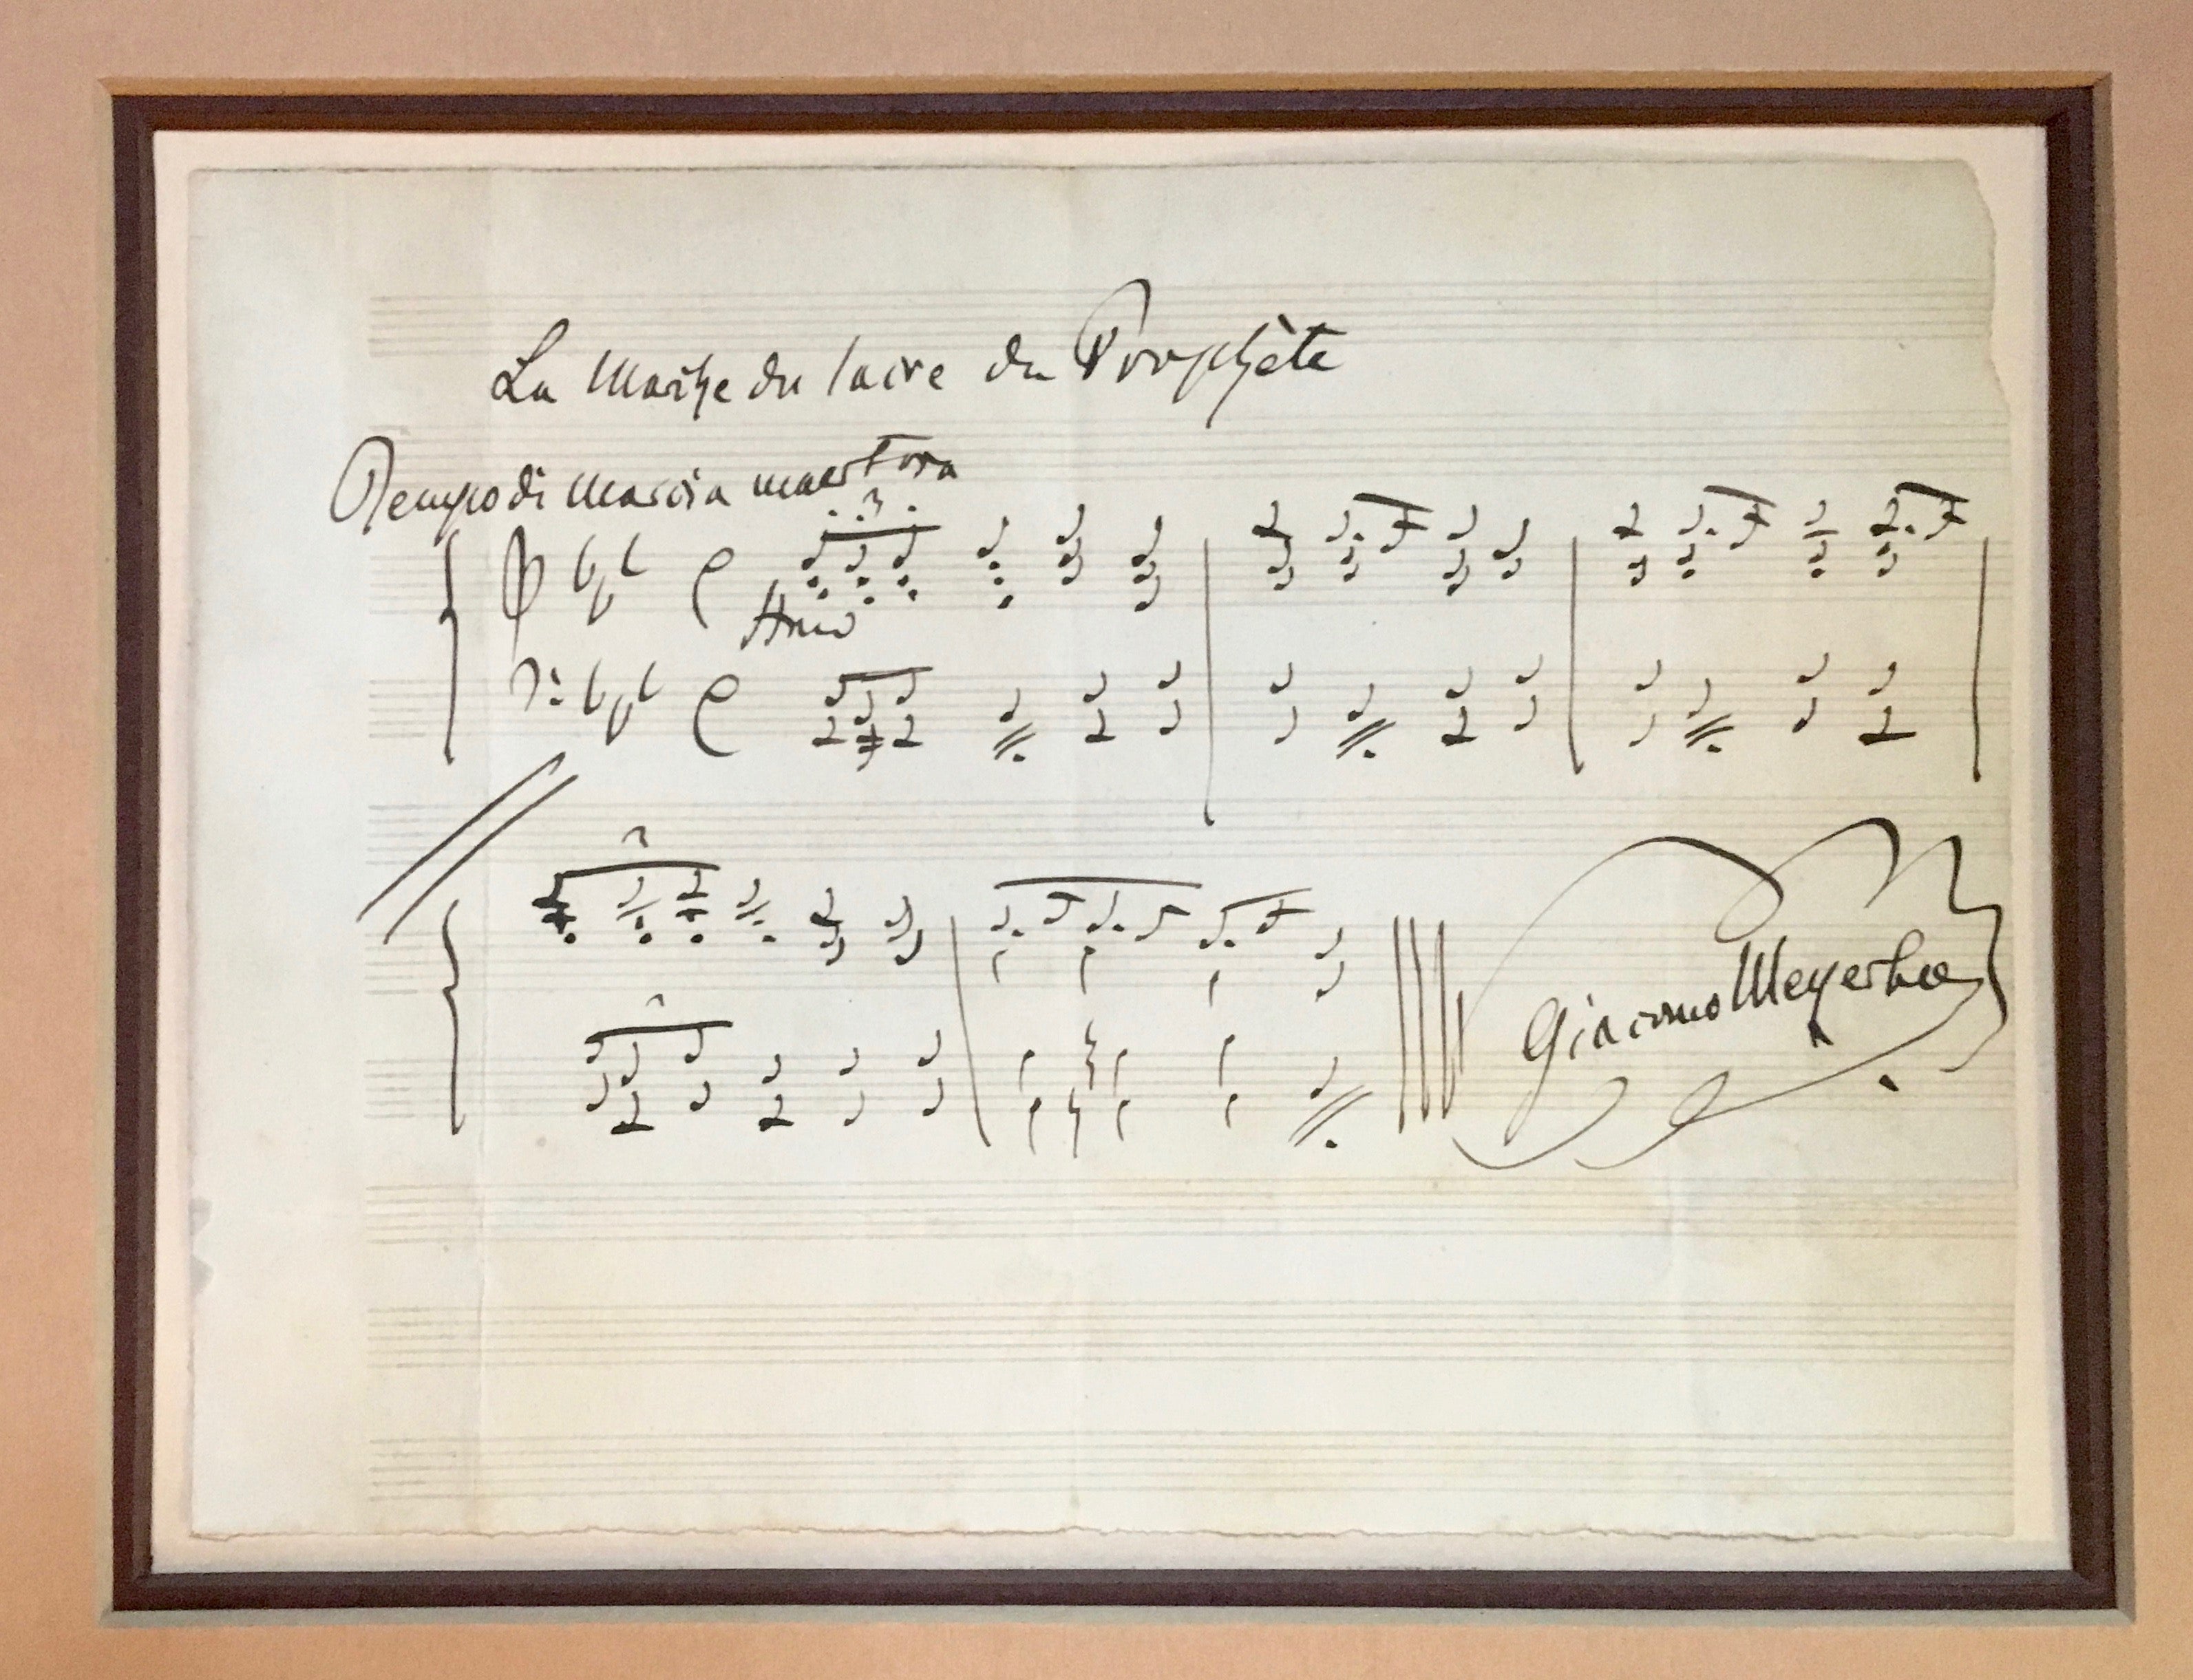 La Marche du sacre du Prophète
Tempo di Marcia maestosa
3
3
3
Giacomo Meyerbeer